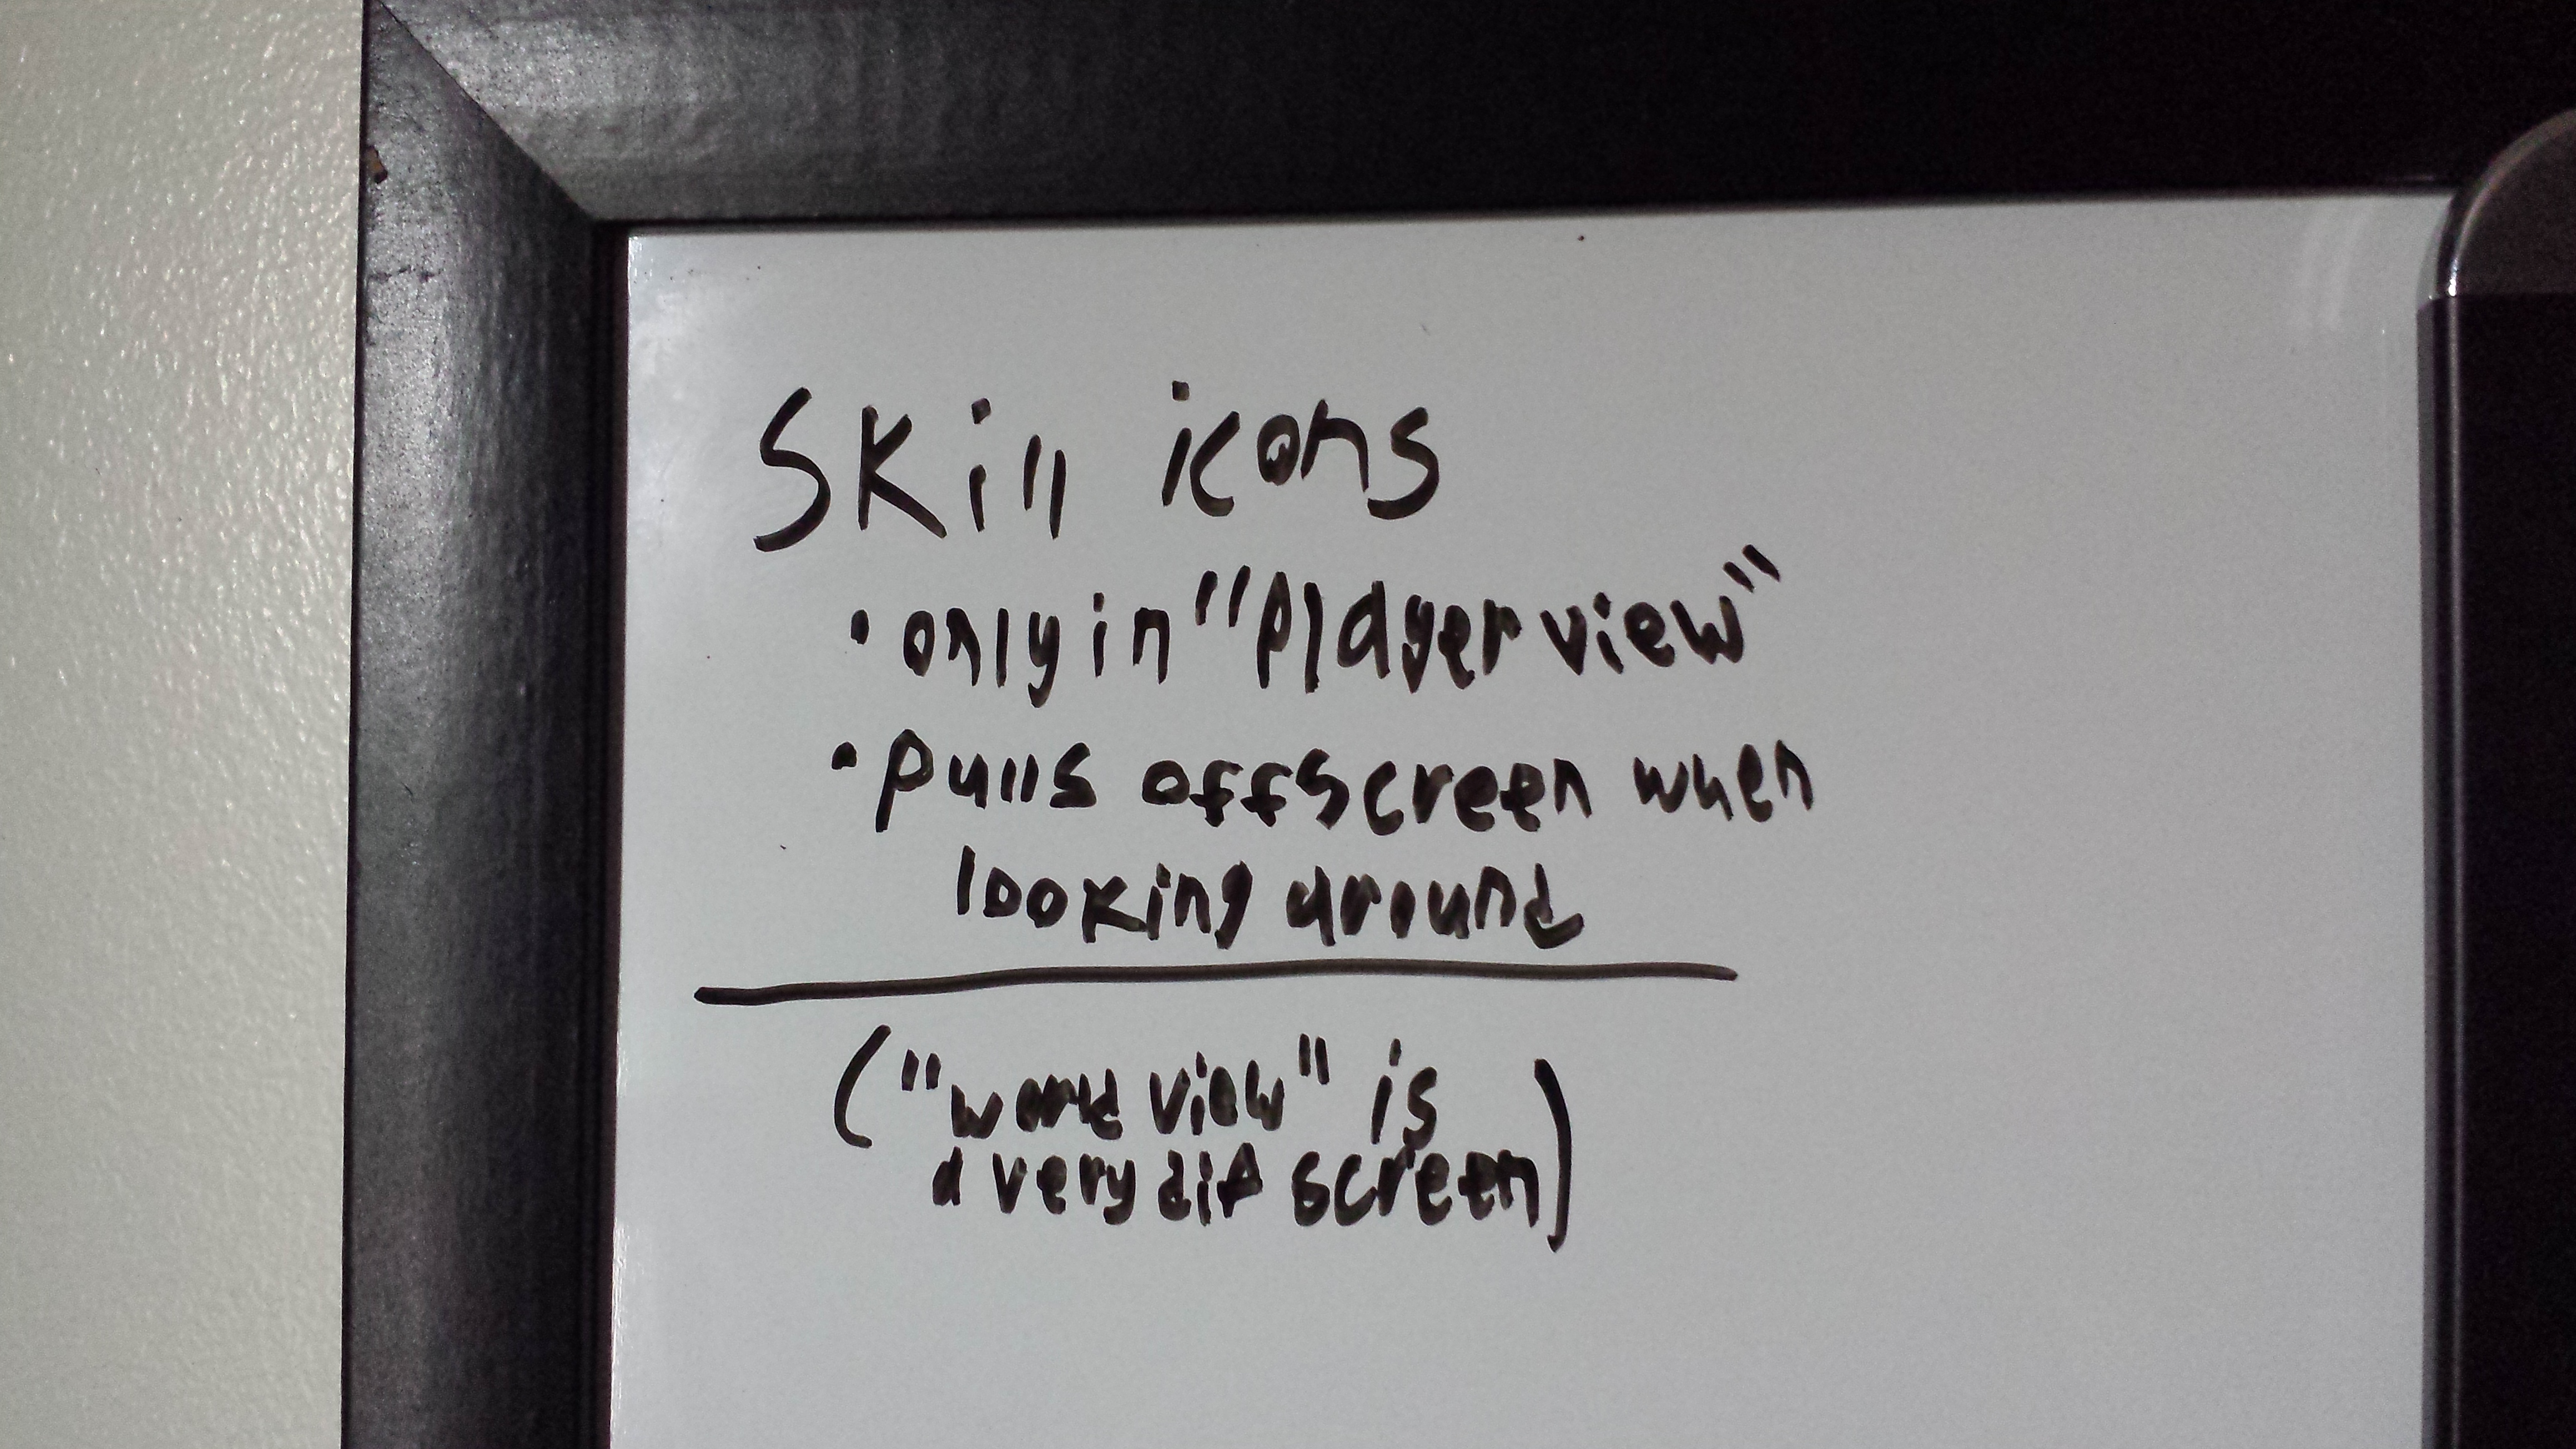 Skill icons
• only in "player view"
• pulls offscreen when
looking around
("world view" is
a very dif screen)